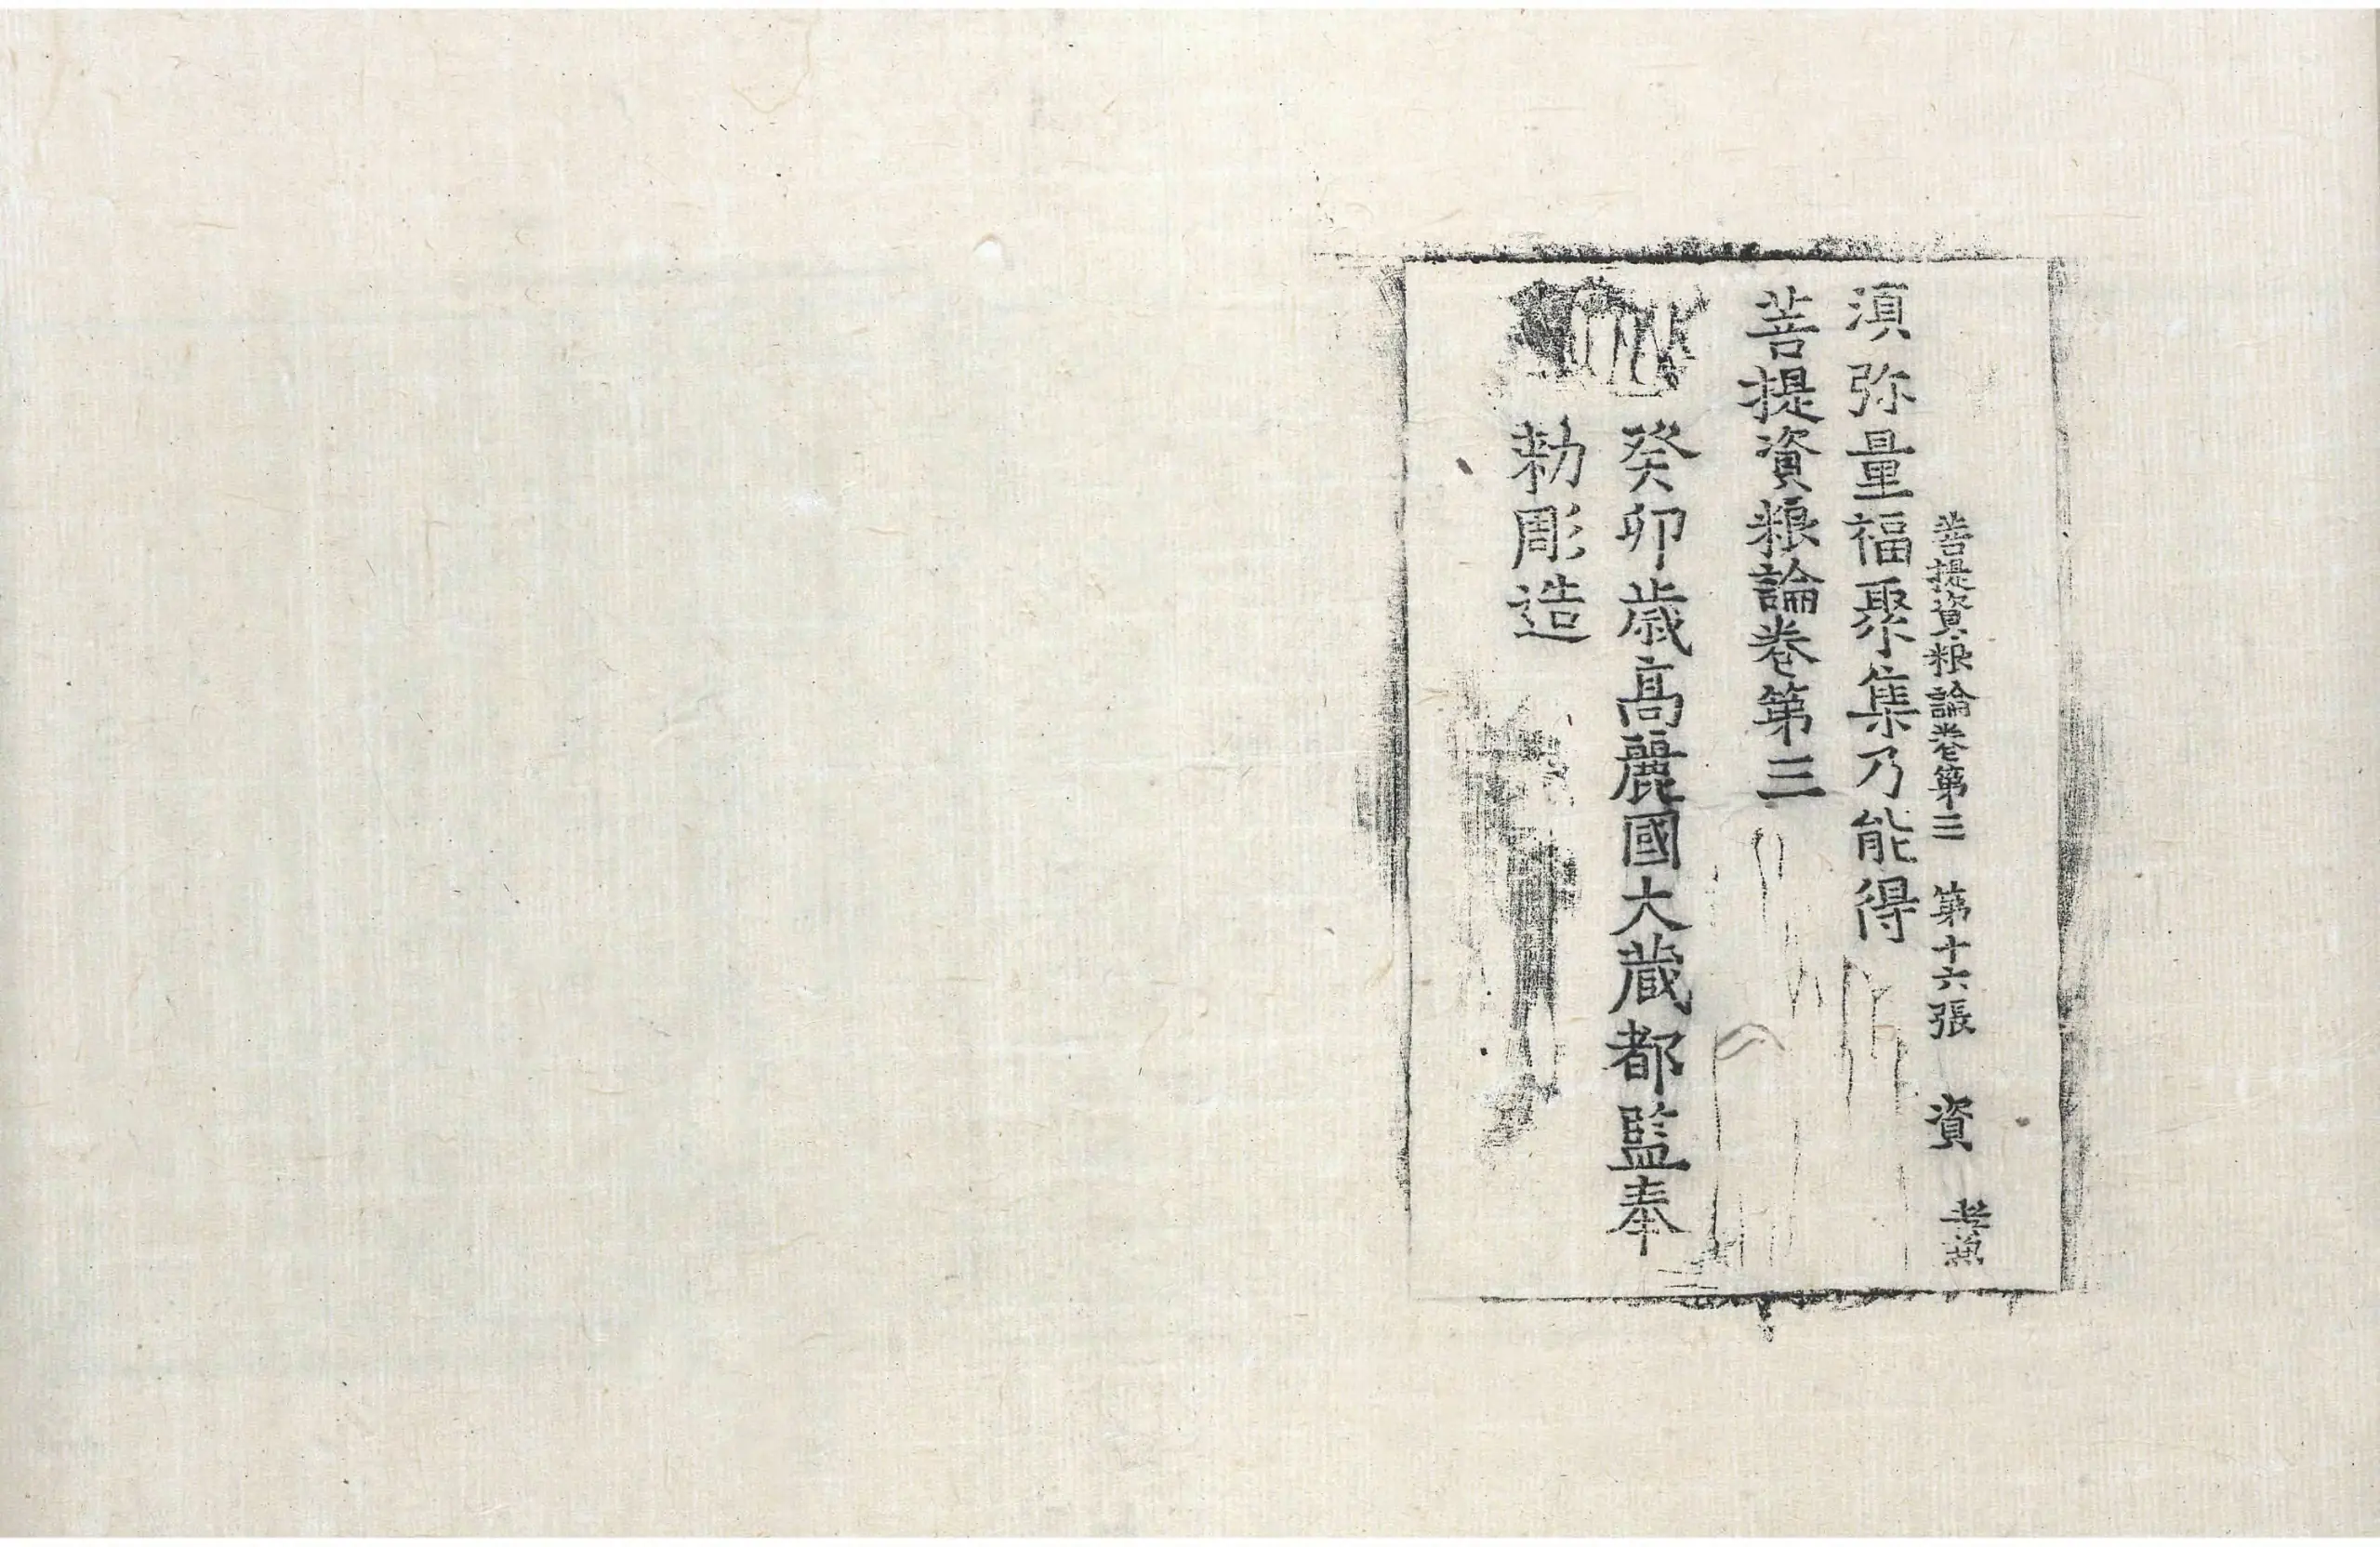 菩提資粮論卷第三 第十六張 資
湏弥量福聚集乃能得
菩提資粮論卷第三
癸卯歲高麗國大藏都監奉
勑彫造